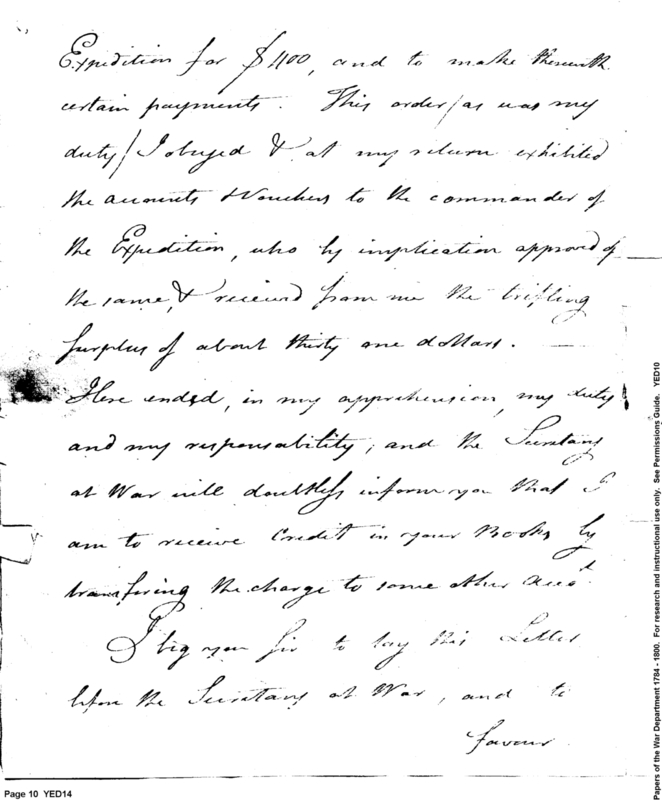 Expedition for $400, and to make therewith
certain payments. This order/as was my
duty/I obeyed & at my return exhibited
the accounts & Vouchers to the commander of
the Expedition, who by implication approved of
the same, & received from me the trifling
surplus of about thirty one dollars.
Here ended, in my apprehension, my duty
and my responsability; and the Secretary
at War will doubtless inform you that I
am to receive Credit in your Books by
transfering the charge to some other Acct.
I beg you Sir to lay this Letter
before the Secretary at War, and to
favour
Page 10 YED14
Papers of the War Department 1784 - 1800. For research and instructional use only. See Permissions Guide. YED10